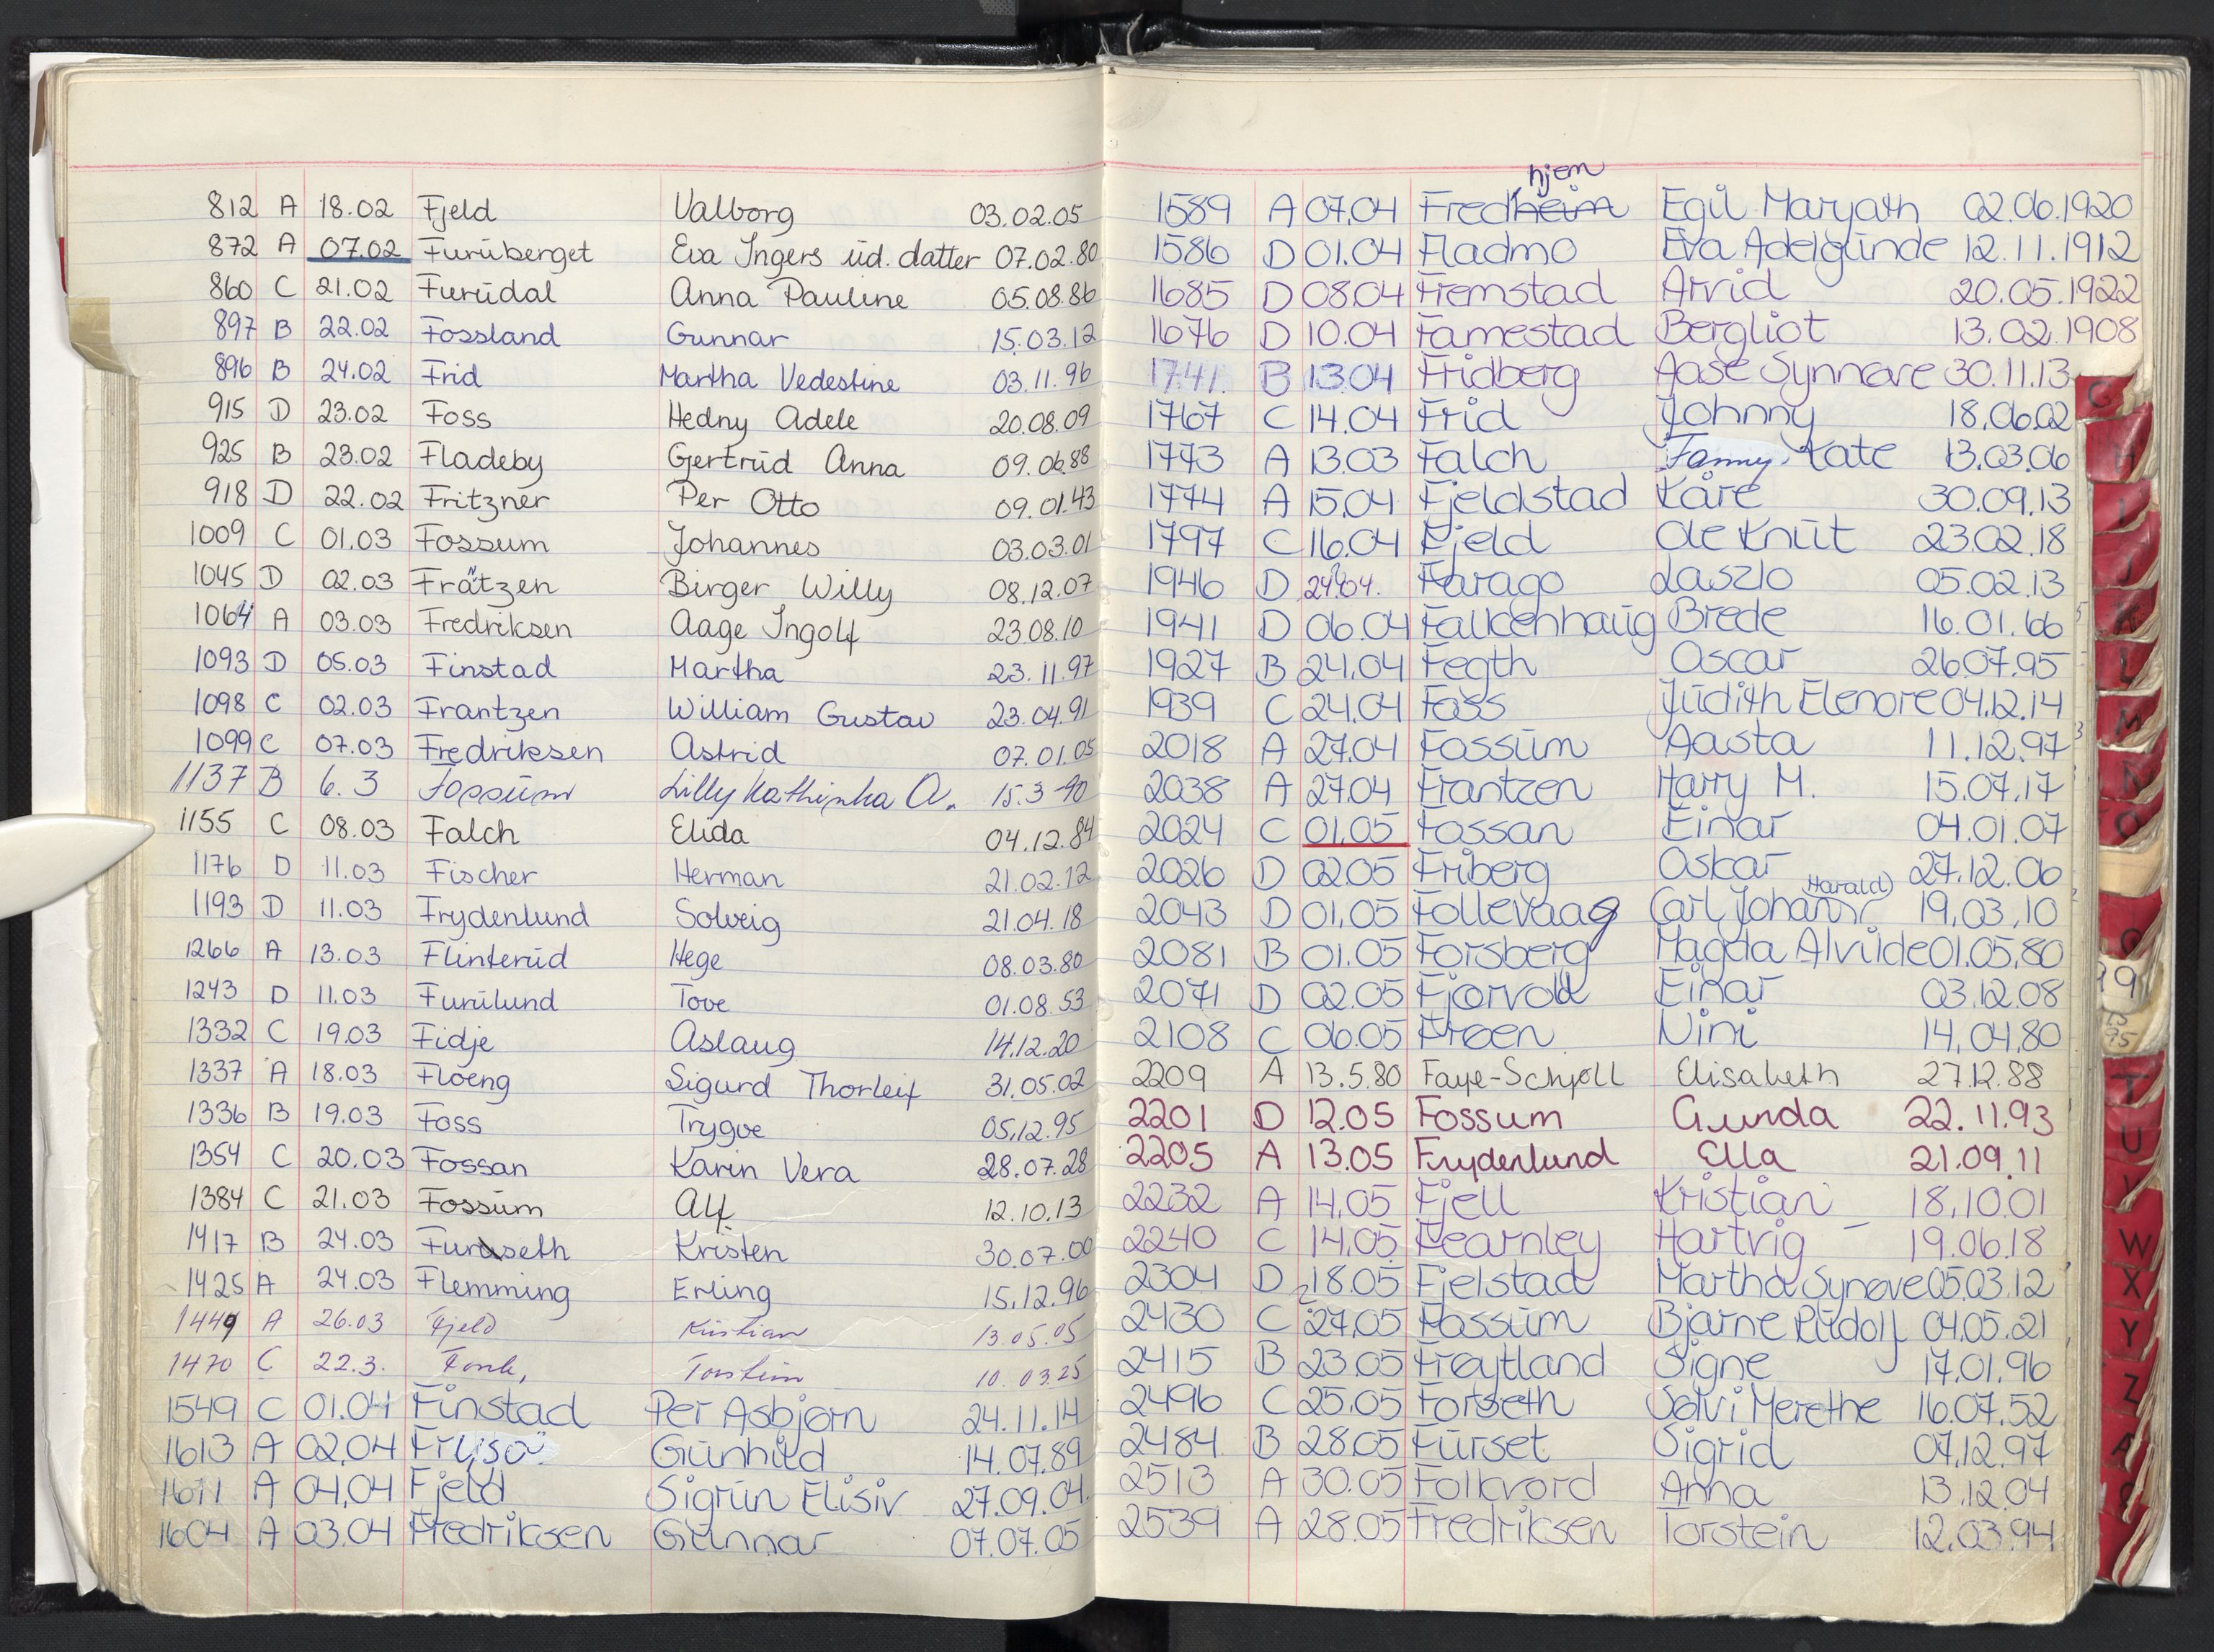 812 A 18.02 Fjeld Valborg 03.02.05
872 A 07.02 Furuberget Eva Ingers ud. datter 07.02.80
860 C 21.02 Furudal Anna Pauline 05.08.86
897 B 22.02 Fossland Gunnar 15.03.12
896 B 24.02 Frid Martha Vedestine 03.11.96
915 D 23.02 Foss Hedny Adele 20.08.09
925 B 23.02 Fladeby Gertrud Anna 09.06.88
918 D 22.02 Fritzner Per Otto 09.01.43
1009 C 01.03 Fossum Johannes 03.03.01
1045 D 02.03 Frätzen Birger Willy 08.12.07
1064 A 03.03 Fredriksen Aage Ingolf 23.08.10
1093 D 05.03 Finstad Martha 23.11.97
1098 C 02.03 Frantzen William Gustav 23.04.91
1099 C 07.03 Fredriksen Astrid 07.01.05
1137 B 6.3 Fossum Lilly Kathinka A. 15.3-90
1155 C 08.03 Falch Elida 04.12.84
1176 D 11.03 Fischer Herman 21.02.12
1193 D 11.03 Frydenlund Solveig 21.04.18
1266 A 13.03 Flinterud Hege 08.03.80
1243 D 11.03 Furulund Tove 01.08.53
1332 C 19.03 Fidje Aslaug 14.12.20
1337 A 18.03 Floeng Sigurd Thorleif 31.05.02
1336 B 19.03 Foss Trygve 05.12.95
1354 C 20.03 Fossan Karin Vera 28.07.28
1384 C 21.03 Fossum Alf 12.10.13
1417 B 24.03 Furuseth Kristen 30.07.00
1425 A 24.03 Flemming Erling 15.12.96
1449 A 26.03 Fjeld Kristian 13.05.05
1470 C 22.3. Fonk, Torstein 10.03.25
1549 C 01.04 Finstad Per Asbjørn 24.11.14
1613 A 02.04 Gunhild 14.07.89
1611 A 04.04 Fjeld Sigrun Elisiv 27.09.04.
1604 A 03.04 Fredriksen Gunnar 07.07.05
hjem
1589 A 07.04 Fredheim Egil Maryath 02.06.1920
1586 D 01.04 Fladmo Eva Adelgunde 12.11.1912
1685 D 08.04 Fremstad Arvid 20.05.1922
1676 D 10.04 Famestad Bergliot 13.02.1908
1741. B 13.04 Fridberg Aase Synnøve 30.11.13
1767 C 14.04 Frid Johnny 18.06.02
1773 A 13.03 Falch Fanny Kate 13.03.06
1774 A 15.04 Fjeldstad Kåre 30.09.13
1797 C 16.04 Fjeld Ole Knut 23.02.18
1946 D 24.04. Farago Laszlo 05.02.13
1941 D 06.04 Falkenhaug Brede 16.01.66
1927 B 24.04 Fegth Oscar 26.07.95
1939 C 24.04 Foss Judith Elenore 04.12.14
2018 A 27.04 Fossum Aasta 11.12.97
2038 A 27.04 Frantzen Harry M. 15.07.17
2024 C 01.05 Fossan Einar 04.01.07
2026 D 02.05 Friberg Oskar 27.12.06
Harald
2043 D 01.05 Follevaag Carl Johan 19.03.10
2081 B 01.05 Forsberg Magda Alvilde 01.05.80
2071 D 02.05 Fjørvold Einar 03.12.08
2108 C 06.05 Frøen Nini 14.04.80
2209 A 13.5.80 Faye-Schjøll Elisabeth 27.12.88
2201 D 12.05 Fossum Gunda 22.11.93
2205 A 13.05 Frydenlund Ella 21.09.11
2232 A 14.05 Fjell Kristian 18.10.01
2240 C 14.05 Fearnley Hartvig 19.06.18
2304 D 18.05 Fjelstad Martha Synøve 05.03.12
2430 C 27.05 Fossum Bjarne Rudolf 04.05.21
2415 B 23.05 Frøytland Signe 17.01.96
2496 C 25.05 Forseth Sølvi Merethe 16.07.52
2484 B 28.05 Furset Sigrid 07.12.97
2513 A 30.05 Folkvord Anna 13.12.04
2539 A 28.05 Fredriksen Torstein 12.03.94
G
H
I
J
K
L
M
N
O
T
U
V
W
X
Y
Z